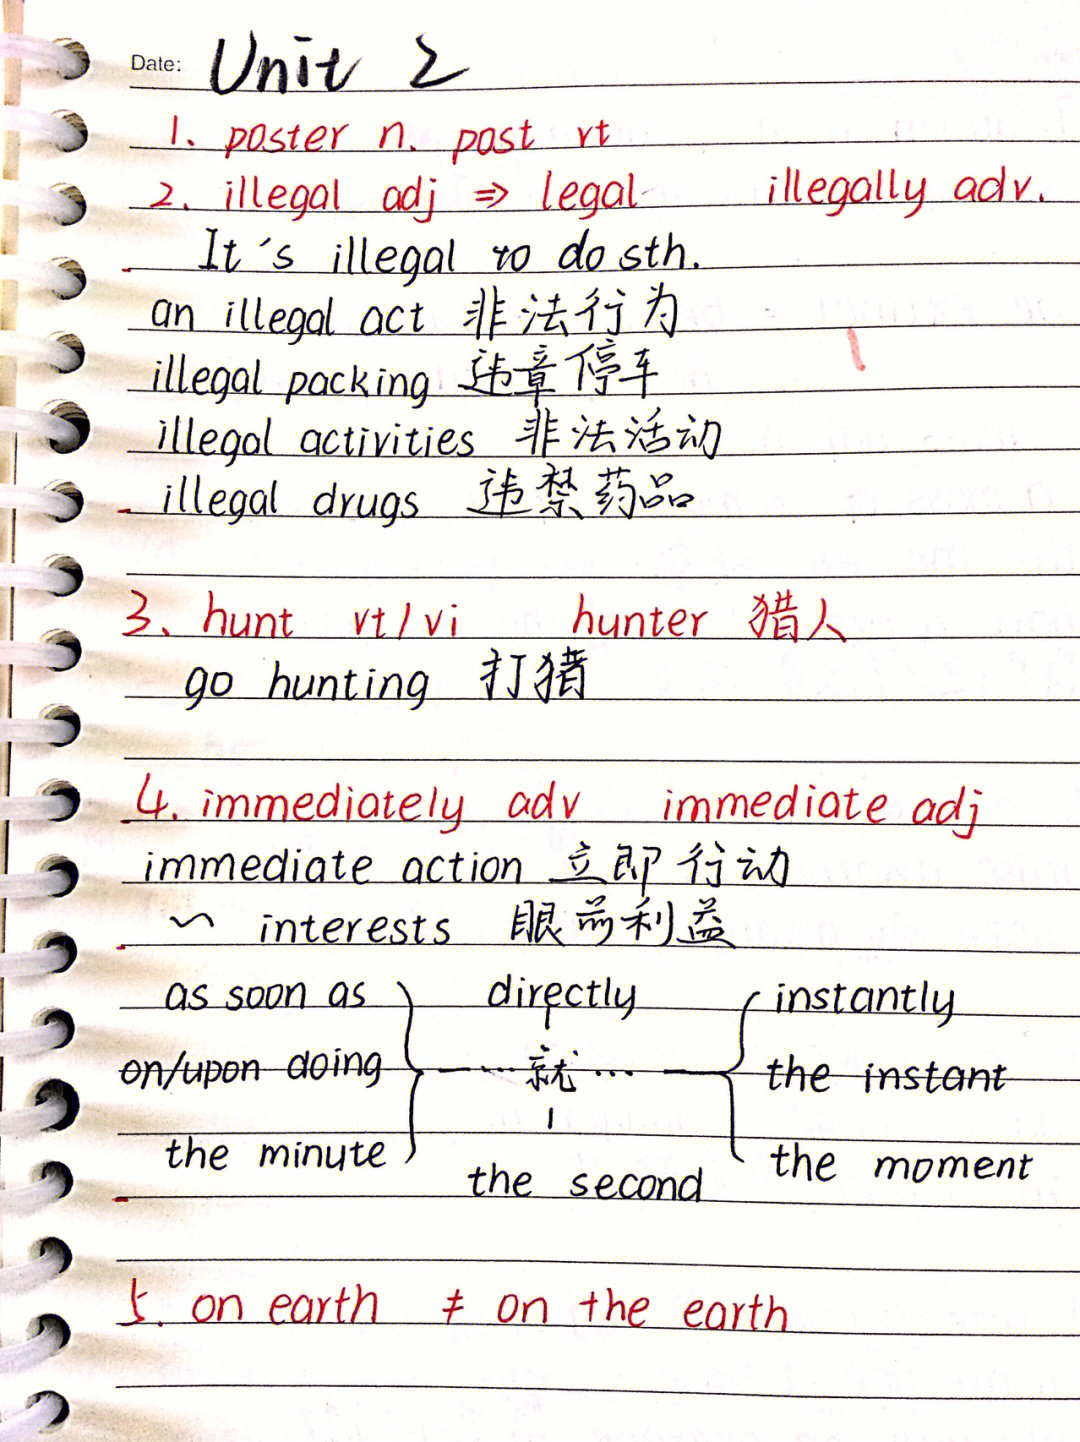 Date: Unit 2
1. poster n. post vt
2. illegal adj ⇒ legal illegally adv.
It's illegal to do sth.
an illegal act 非法行为
illegal packing 违章停车
illegal activities 非法活动
illegal drugs 违禁药品
3、hunt vt/vi hunter 猎人
go hunting 打猎
4. immediately adv immediate adj
immediate action 立即行动
~ interests 眼前利益
as soon as directly instantly
on/upon doing ...就... the instant
the minute the second the moment
5. on earth ≠ on the earth